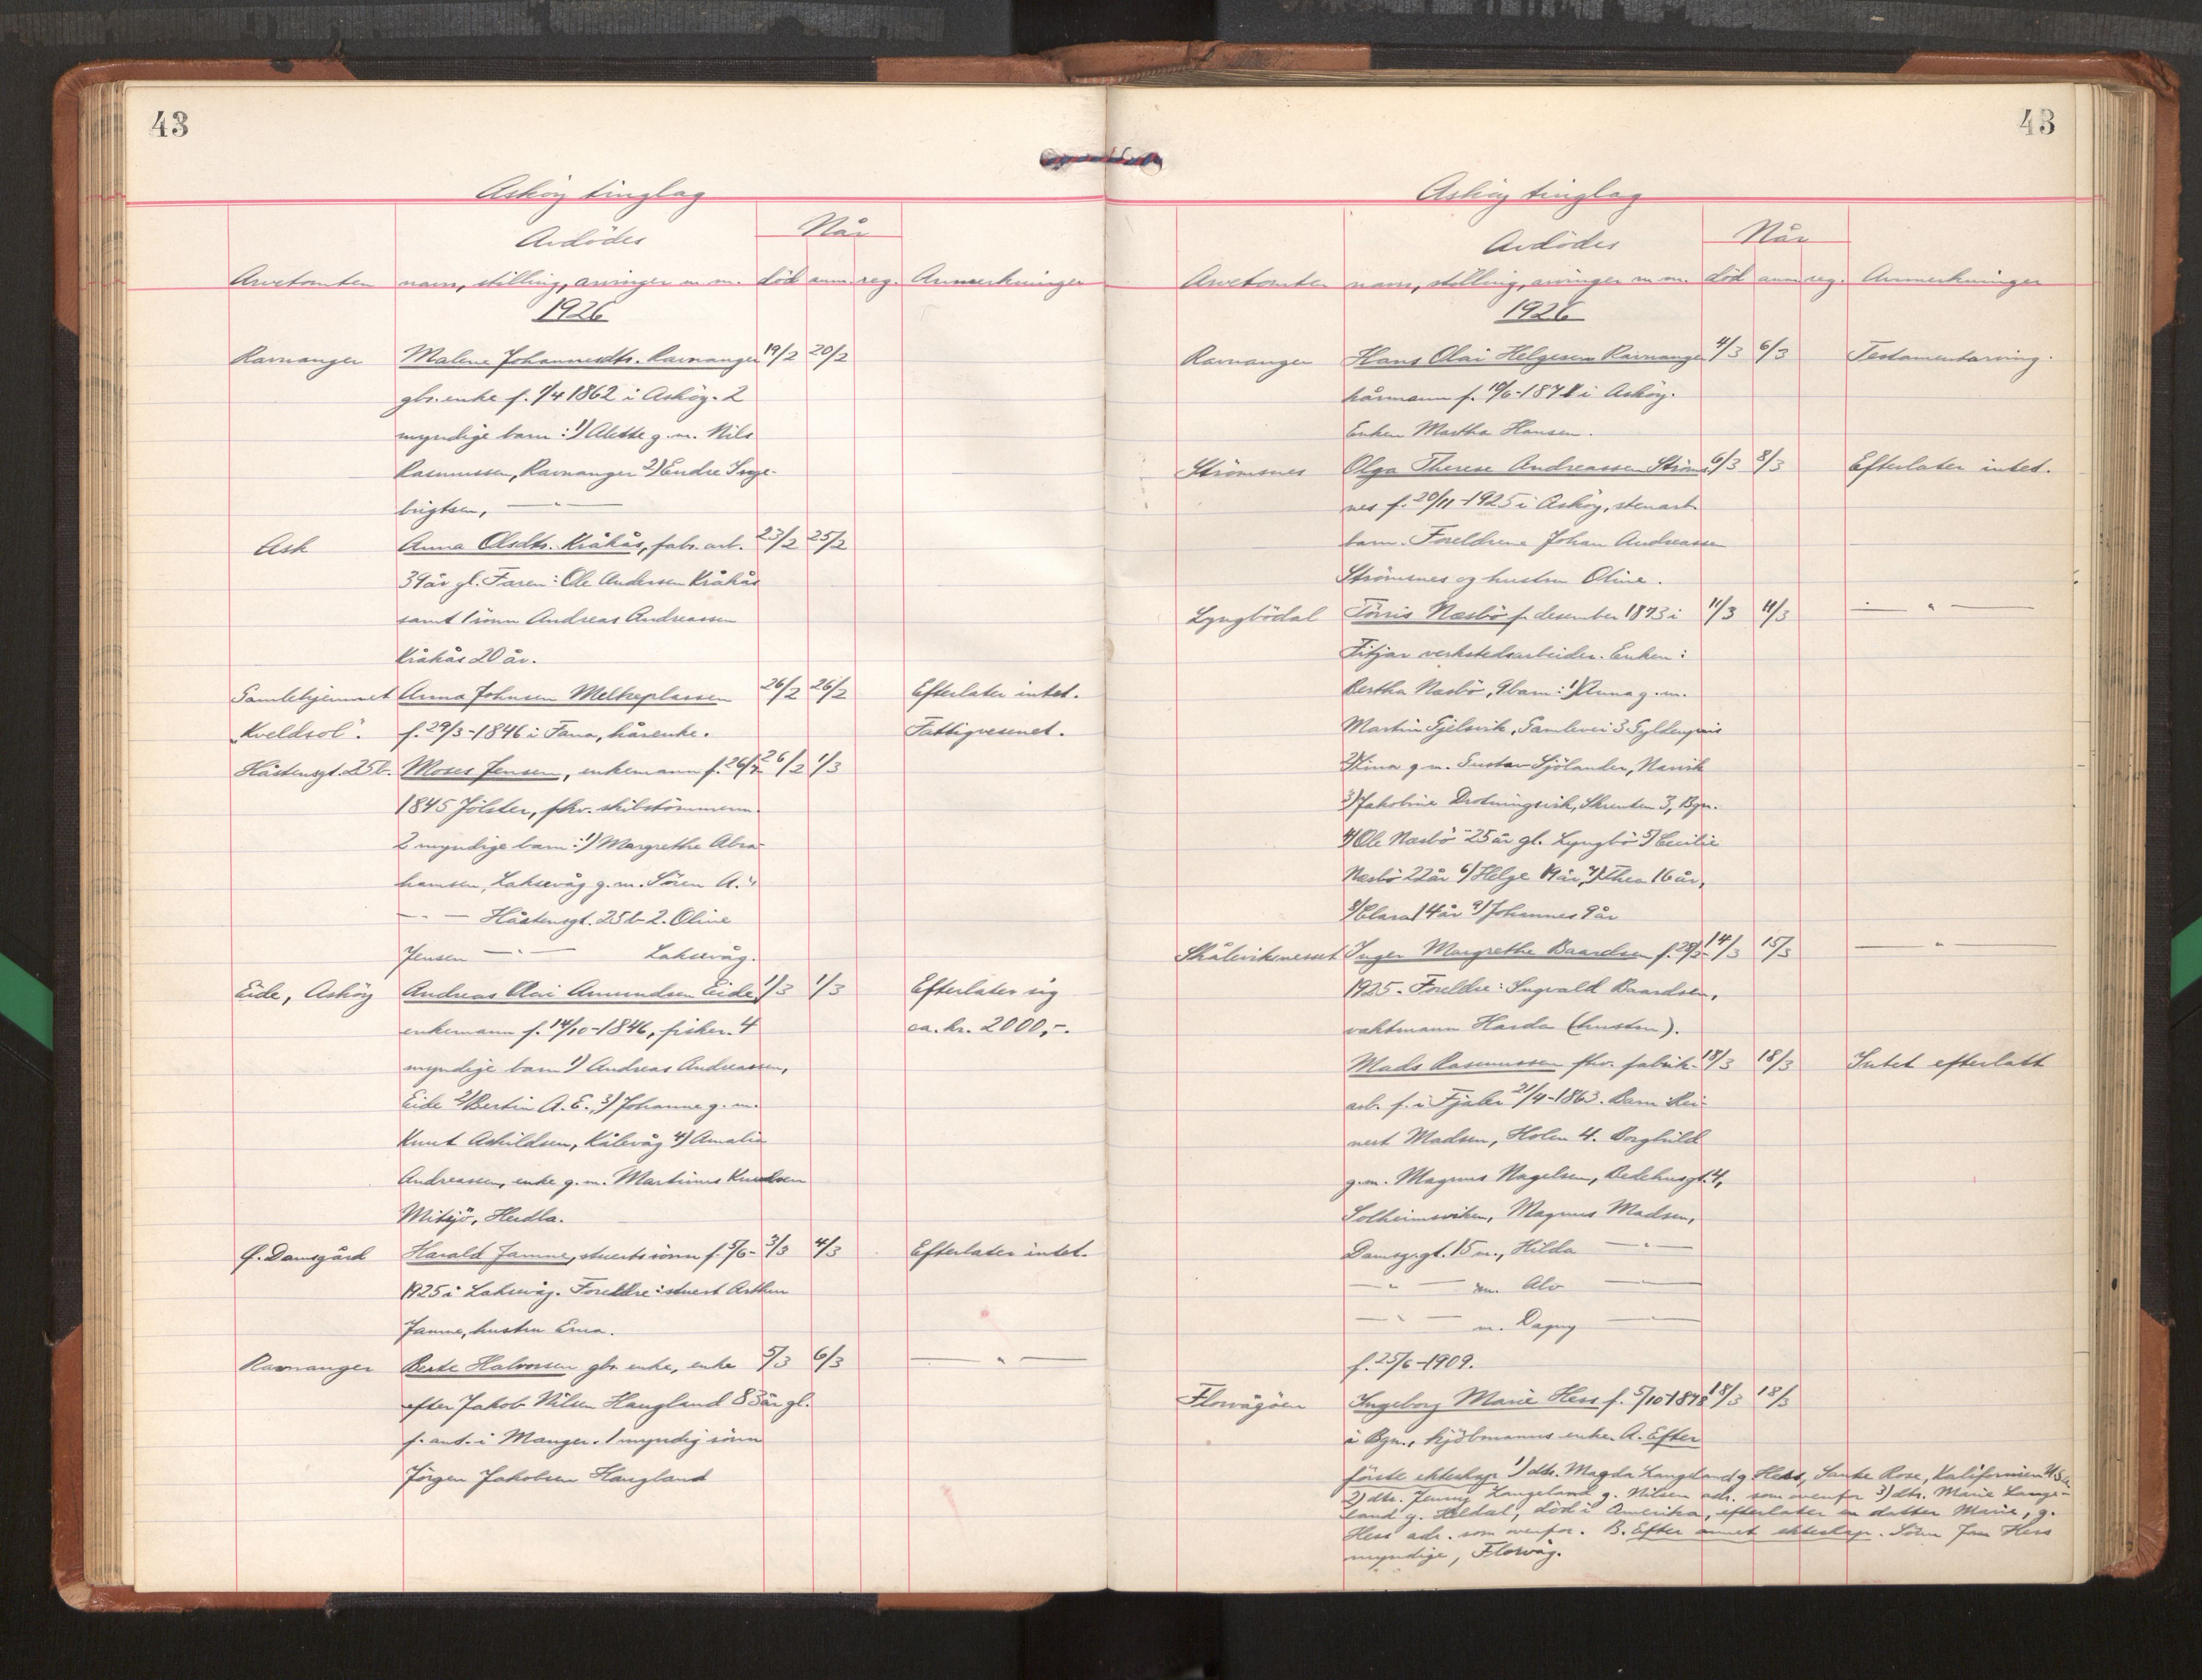 43
Askøy tinglag
Avdödes
Når
Arvetomten navn, stilling, arvinger m.m. död anm. reg. Anmerkninger
1926
Ravnanger Malene Johannesdtr. Ravnanger 19/2 20/2
gbr. enke f. 1/4 1862 i Asköy. 2
myndige barn: 1) Alette g. m. Nils
Rasmussen, Ravnanger 2) Endre Inge-
brigtsen, — " —
Ask Anna Olsdtr. Kråkås, fabr. arb. 23/2 25/2
39 år gl. Faren: Ole Andersen Kråkås
samt 1 sönn Andreas Andreassen
Kråkås 20 år.
Gamlehjemmet Anna Johnsen Melkeplassen 26/2 26/2 Efterlater intet.
"Kveldsol". f. 29/3-1846 i Fana, kårenke. Fattigvesenet.
Håstensgt. 25 b. Moses Jensen, enkemann f. 26/7- 26/2 1/3
1845 Jölster, fhv. skibstömmerm.
2 myndige barn: 1) Margrethe Abra-
hamsen, Laksevåg g. m. Sören A.
— " — Håstensgt. 25 b 2. Oline
Jensen — " — Laksevåg.
Eide, Asköy Andreas Olai Amundsen Eide 1/3 1/3 Efterlater sig
enkemann f. 14/10-1846, fisker. 4 ca. kr. 2000,-.
myndige barn 1) Andreas Andreassen,
Eide 2) Bertin A. E., 3) Johanne g. m.
Knut Askildsen, Kålevåg 4) Amalie
Andreassen, enke g. m. Martinus Knudsen
Mitsjö, Herdla.
G. Damsgård Harald Jamne, stuerts sönn f. 5/6- 3/3 4/3 Efterlater intet.
1925 i Laksevåg. Foreldre: stuert Arthur
Jamne, hustru Erna.
Ravnanger Berte Halvorsen gbr. enke, enke 5/3 6/3 — " —
efter Jakob Nilsen Haugland 83 år gl.
f. ant. i Manger. 1 myndig sönn
Jörgen Jakobsen Haugland
43
Asköy tinglag
Avdödes
Når
Arvetomten navn, stilling, arvinger m.m. död anm. reg. Anmerkninger
1926
Ravnanger Hans Olai Helgesen Ravnanger 4/3 6/3 Testamentarving.
kårmann f. 19/6-1871 i Asköy.
Enken Martha Hansen.
Strömsnes Olga Therese Andreassen Ströms- 6/3 8/3 Efterlater intet.
nes f. 20/11-1925 i Asköy, stenarb.
barn. Foreldrene Johan Andreassen
Strömsnes og hustru Oline.
Lyngbödal Törris Næsbö f. desember 1873 i 11/3 11/3 — " —
Fitjar verkstedsarbeider. Enken:
Bertha Næsbö, 9 barn: 1) Anna g. m.
Martin Gjelsvik, Gamlevei 3 Gyldenpris
2) Kina g m. Gustav Sjölander, Narvik
3) Jakobine Drotningsvik, Skrenten 3, Bgn.
4) Ole Næsbö 25 år gl. Lyngbö 5) Cecilie
Næsbö 22 år 6) Helge 19 år, 7) Thea 16 år,
8) Clara 14 år 9) Johannes 9 år
Skåleviksneset Inger Margrethe Baardsen f. 28/2- 14/3 15/3 — " —
1925. Foreldre: Ingvald Baardsen,
vaktmann Harda (hustru).
Mads Rasmussen fhv. fabrik- 18/3 18/3 Intet efterlatt
arb. f. i Fjaler 21/4-1863. Barn: Rei-
nert Madsen, Holen 4. Borghild
g.m. Magnus Nagelsen, Bedehusgt. 4,
Solheimsviken, Magnus Madsen,
Damsg.gt. 15 m., Hilda — " —
— " — m. Alv — " —
— " — m. Dagny — " —
f. 25/6-1909.
Florvågöen Ingeborg Marie Hess f. 5/10-1878 18/3 18/3
i Bgn., kjöbmanns enke. A. Efter
förste ekteskap 1) dtr. Magda Langeland g. Hess, Santa Rosa, Kalifornien U.S.A.
2) dtr. Jenny Langeland g. Nilsen adr. som ovenfor 3) dtr. Marie Lange-
land g. Heldal, död i Amerika, efterlater en datter Marie, g.
Hess adr. som ovenfor. B. Efter annet ekteskap. Sönn Jan Hess
myndige, Florvåg.